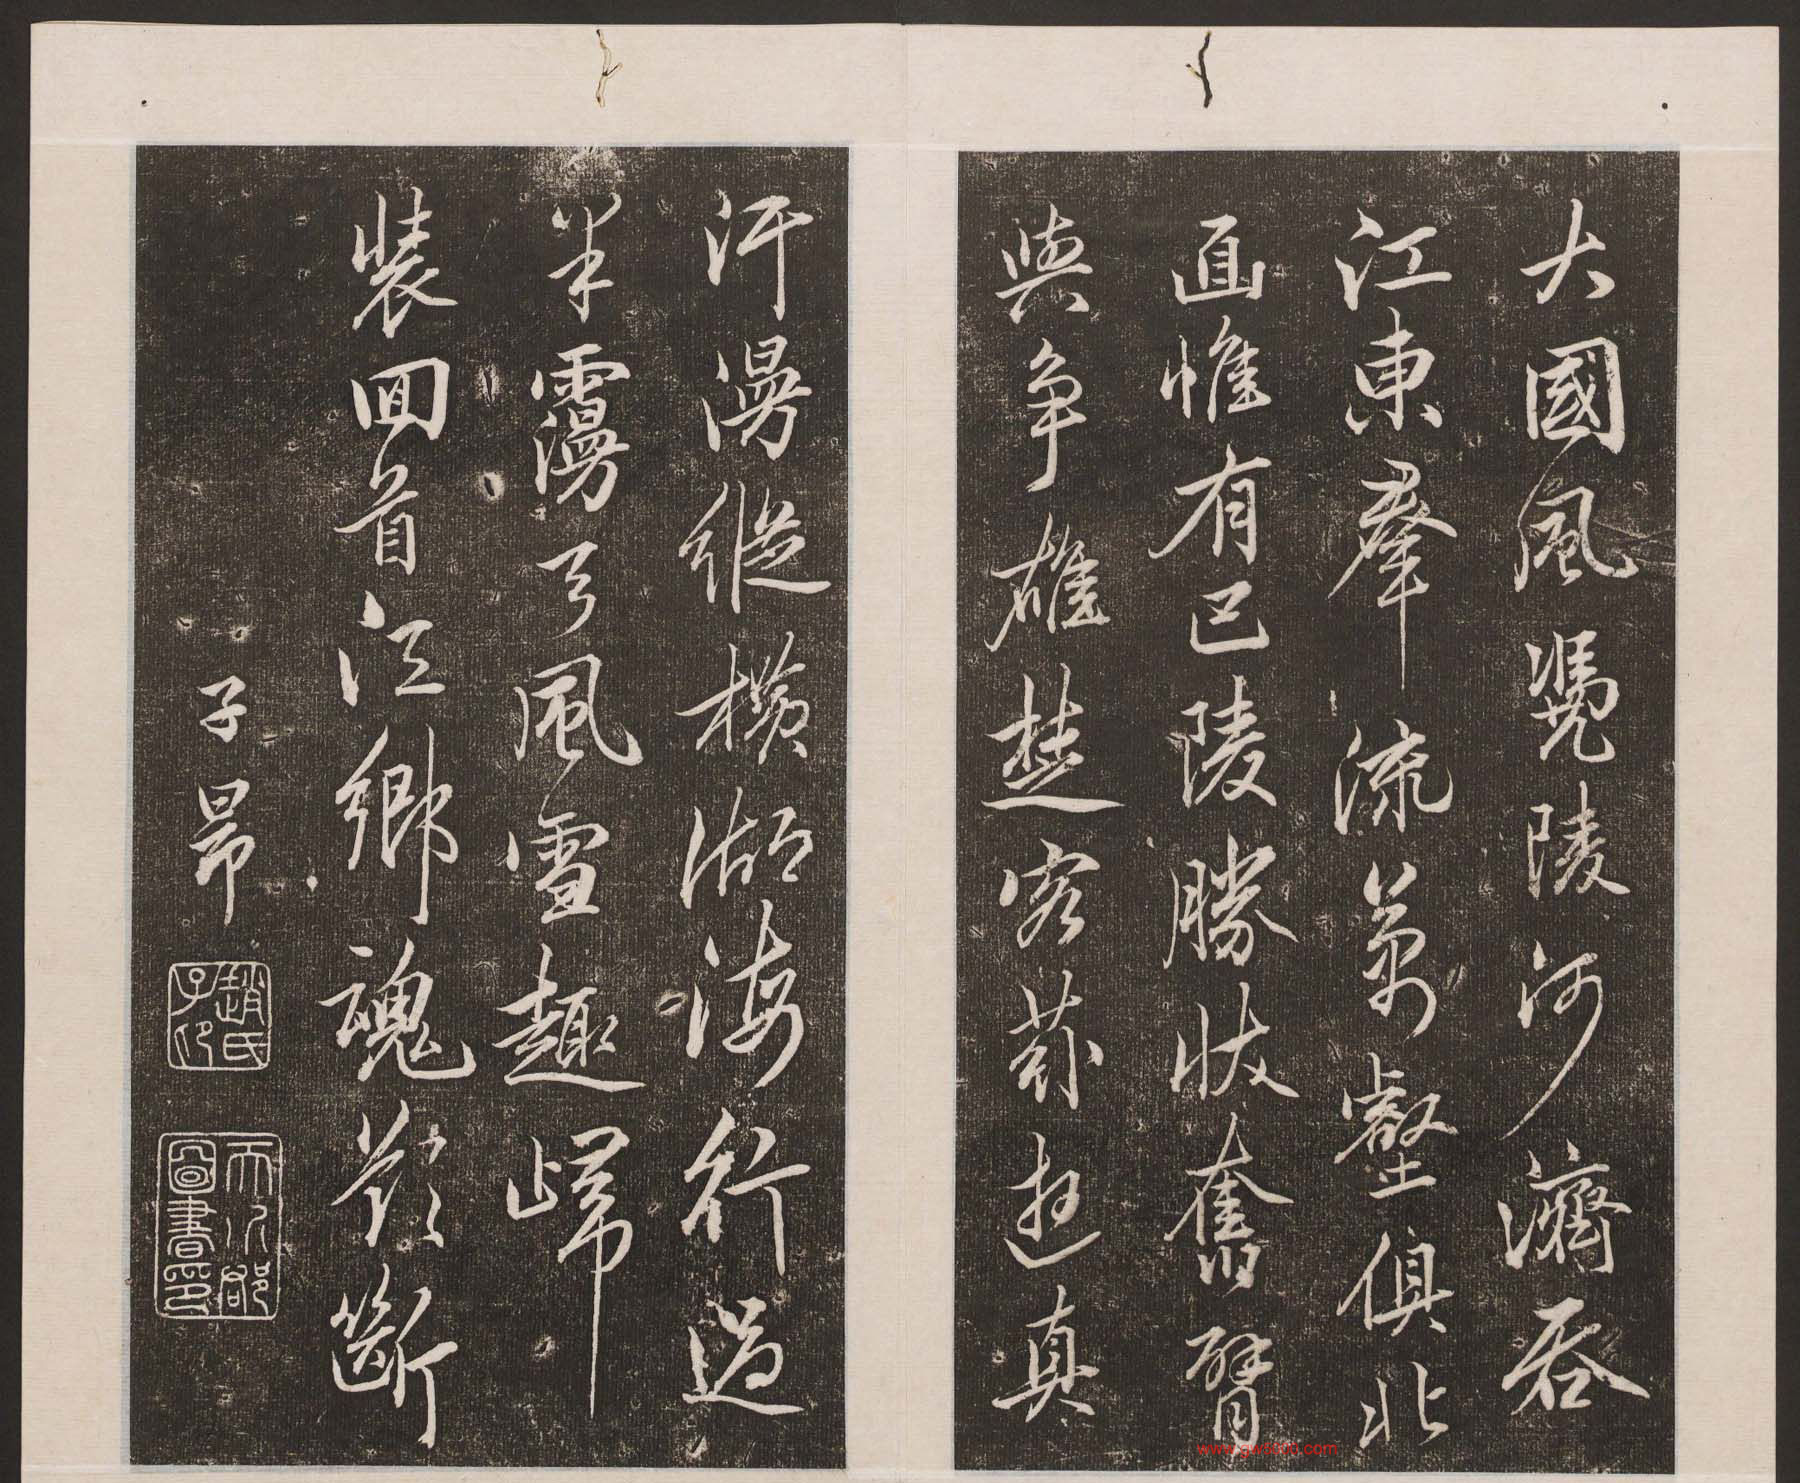 大國風凴陵河濟吞
江東羣流萬壑俱北
面惟有巴陵勝狀奮臂
與爭雄楚客茲遊真
汗漫縱橫湖海行過
半了風雪趣歸
裝回首江鄉魂欲斷
子昂
趙氏子昂
天水郡圖書印